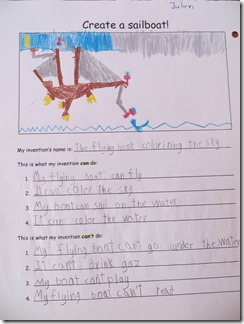 Julien
Create a sailboat!
My invention's name is: The flying boat coloriting the sky
This is what my invention can do:
1. My flying boat can fly
2. It can color the sky
3. My boat can sail on the water
4. It can color the water
This is what my invention can't do:
1. My flying boat can't go under the water
2. It can't drink gaz
3. My boat can't play
4. My flying boat can't read